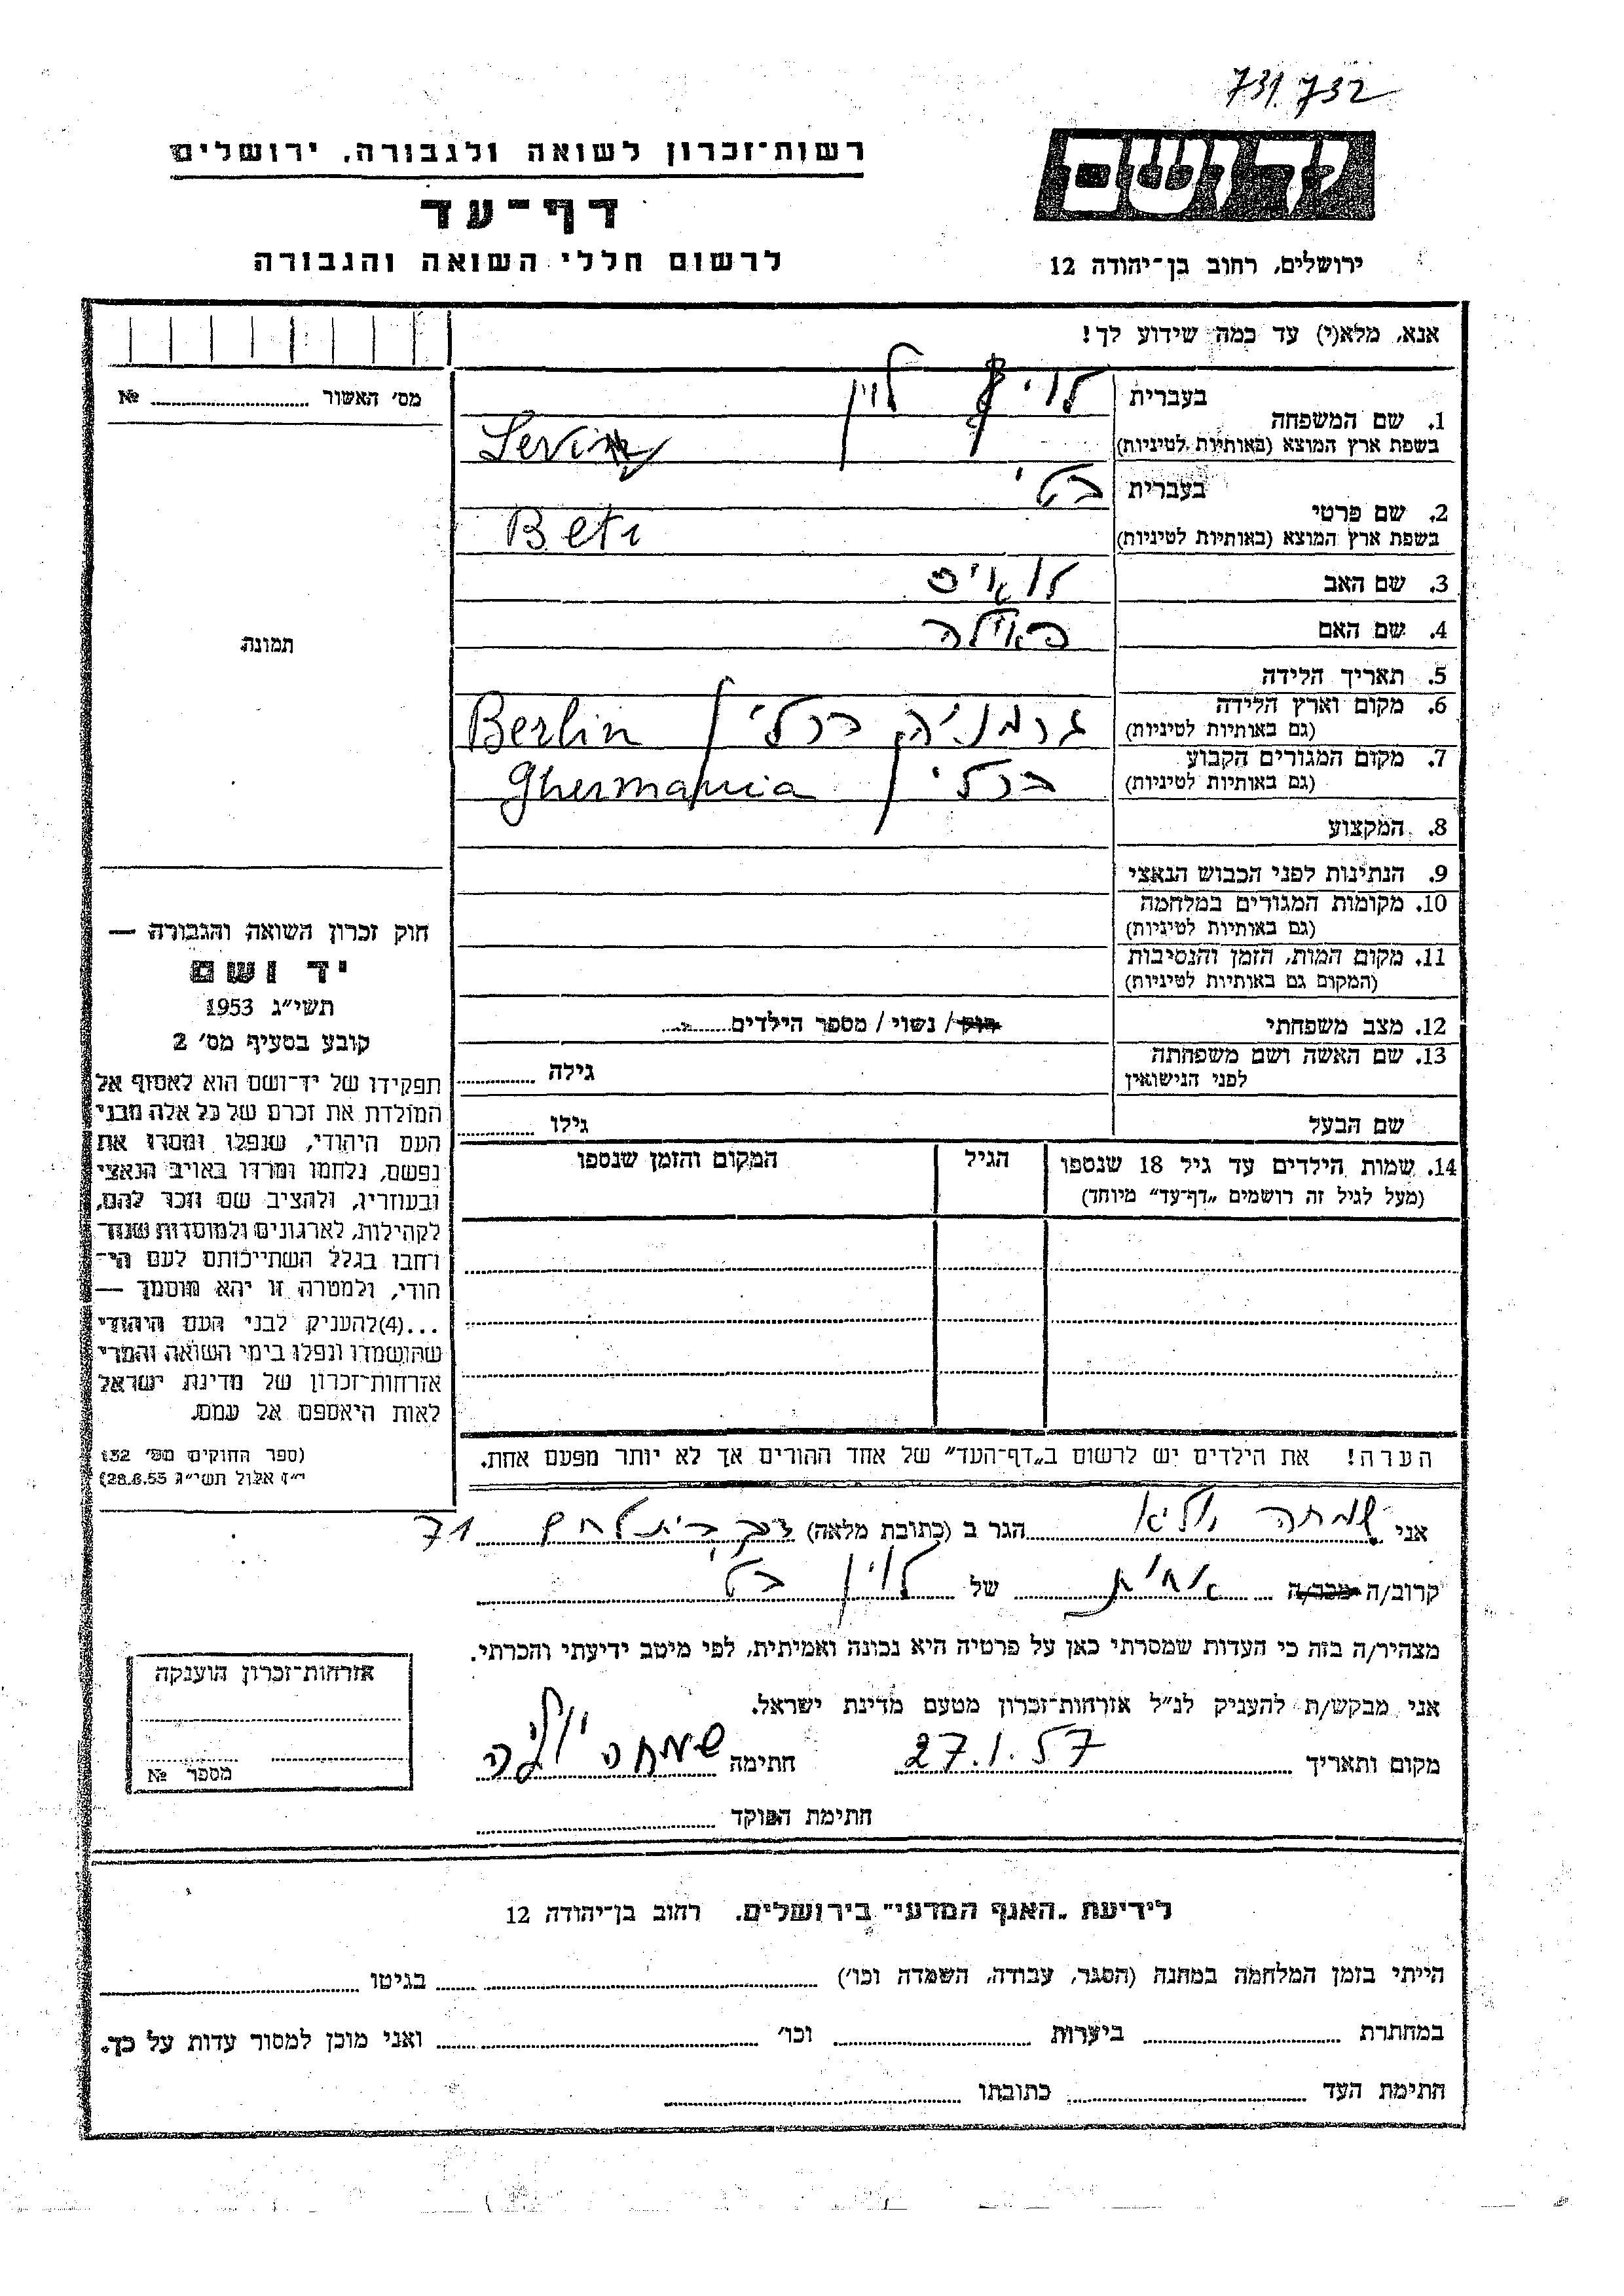 731.732
רשות־זכרון לשואה ולגבורה, ירושלים
יד ושם
דף־עד
לרשום חללי השואה והגבורה
ירושלים, רחוב בן־יהודה 12
אנא, מלא(י) עד כמה שידוע לך!
מס' האשור № 
1. שם המשפחה בעברית לוין
בשפת ארץ המוצא (באותיות לטיניות) Levin
2. שם פרטי בעברית בטי
בשפת ארץ המוצא (באותיות לטיניות) Beti
3. שם האב לואיס
4. שם האם
תמונה
5. תאריך הלידה
6. מקום וארץ הלידה (גם באותיות לטיניות) גרמניה ברלין Berlin
7. מקום המגורים הקבוע (גם באותיות לטיניות) ברלין Ghermania
8. המקצוע
9. הנתינות לפני הכבוש הנאצי
10. מקומות המגורים במלחמה
(גם באותיות לטיניות)
11. מקום המות, הזמן והנסיבות
(המקום גם באותיות לטיניות)
12. מצב משפחתי רווק / נשוי / מספר הילדים
13. שם האשה ושם משפחתה לפני הנישואין גילה
שם הבעל גילו
14. שמות הילדים עד גיל 18 שנספו
(מעל לגיל זה רושמים „דף־עד” מיוחד)
הגיל
המקום והזמן שנספו
חוק זכרון השואה והגבורה —
יד ושם
תשי״ג 1953
קובע בסעיף מס' 2
תפקידו של יד־ושם הוא לאסוף אל
המולדת את זכרם של כל אלה מבני
העם היהודי, שנפלו ומסרו את
נפשם, נלחמו ומרדו באויב הנאצי
ובעוזריו, ולהציב שם וזכר להם,
לקהילות, לארגונים ולמוסדות שנח־
רחבו בגלל השתייכותם לעם הי־
הודי, ולמטרה זו יהא מוסמך —
...(4)להעניק לבני העם היהודי
שהושמדו ונפלו בימי השואה והמרי
אזרחות־זכרון של מדינת ישראל
לאות היאספם אל עמם.
(ספר החוקים מס' 132
י״ז אלול תשי״ג 28.8.53)
הערה! את הילדים יש לרשום ב„דף־העד” של אחד ההורים אך לא יותר מפעם אחת.
אני שמחה הגר ב (כתובת מלאה) דרך בית לחם 71
קרוב/ה מכר/ה אחית של לוין בטי
מצהיר/ה בזה כי העדות שמסרתי כאן על פרטיה היא נכונה ואמיתית, לפי מיטב ידיעתי והכרתי.
אני מבקש/ת להעניק לנ״ל אזרחות־זכרון מטעם מדינת ישראל.
מקום ותאריך 27.1.57 חתימה שמחה
חתימת הפוקד
אזרחות־זכרון הוענקה
מספר №
לידיעת „האגף המדעי” בירושלים, רחוב בן־יהודה 12
הייתי בזמן המלחמה במחנה (הסגר, עבודה, השמדה וכו') בגיטו
במחתרת ביערות וכו' ואני מוכן למסור עדות על כך.
חתימת העד כתובתו